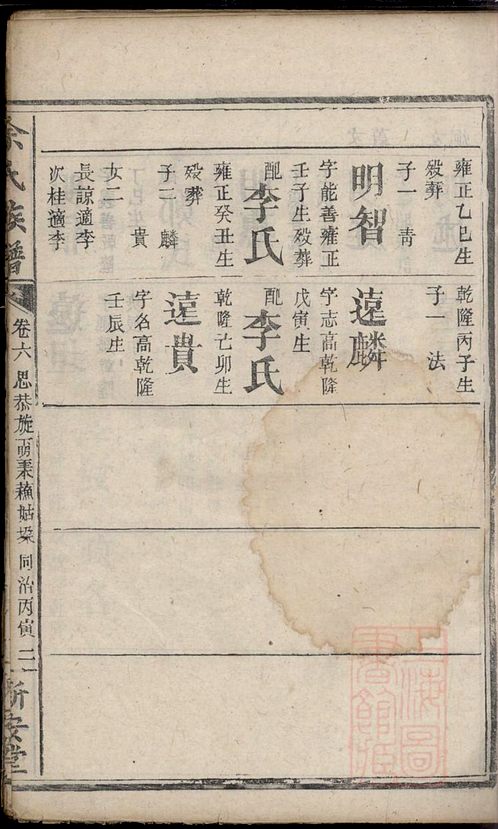 雍正乙巳生
殁葬
子一 青
明智
字能善雍正
壬子生殁葬
配李氏
雍正癸丑生
殁葬
子三 麟
貴
女二
長諒適李
次桂適李
乾隆丙子生
子一 法
遠麟
字志高乾隆
戊寅生
配李氏
乾隆己卯生
遠貴
字名高乾隆
壬辰生
余氏族譜
卷六 思恭旋
同治丙寅 二
新安堂
上海圖書館藏